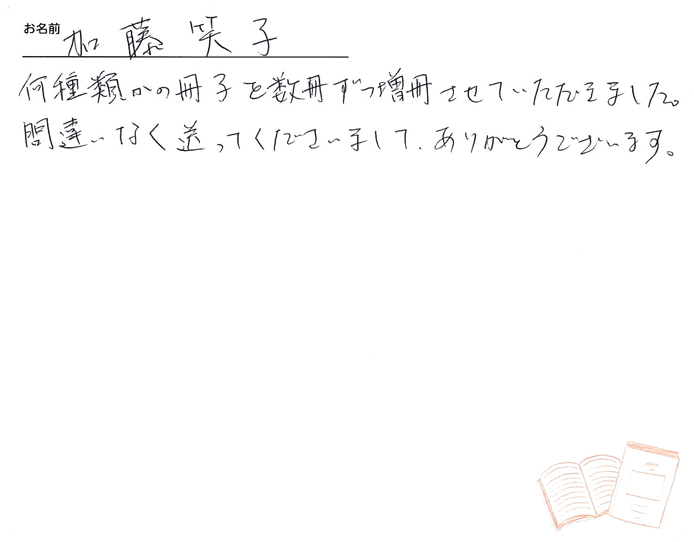 お名前 加藤 笑子
何種類かの冊子を数冊ずつ増冊させていただきました。
間違いなく送ってくださいまして、ありがとうございます。